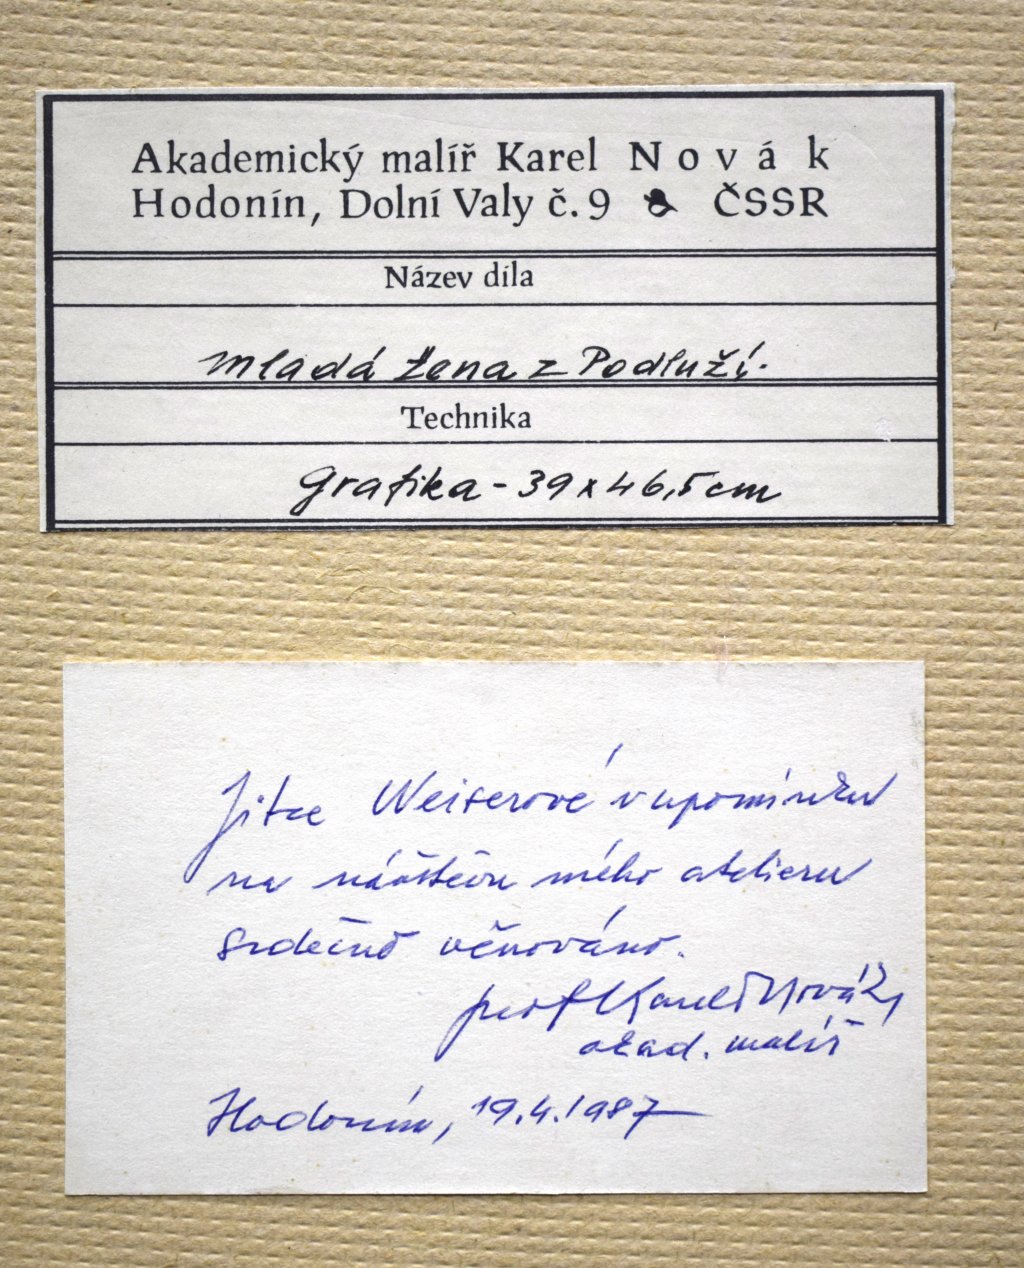 Akademický malíř Karel Novák
Hodonín, Dolní Valy č. 9 ČSSR
Název díla
Mladá žena z Podluží.
Technika
Grafika - 39 x 46,5 cm
Jitce Weiserové v upomínku
na návštěvu mého atelieru
srdečně věnováno.
prof Karel Novák,
akad. malíř
Hodonín, 19.4.1987